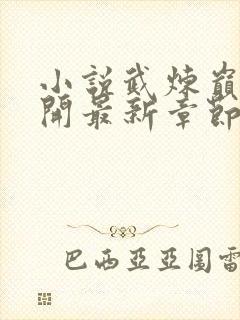 小說武煉巔
開最新章節
巴西亞亞圖雷